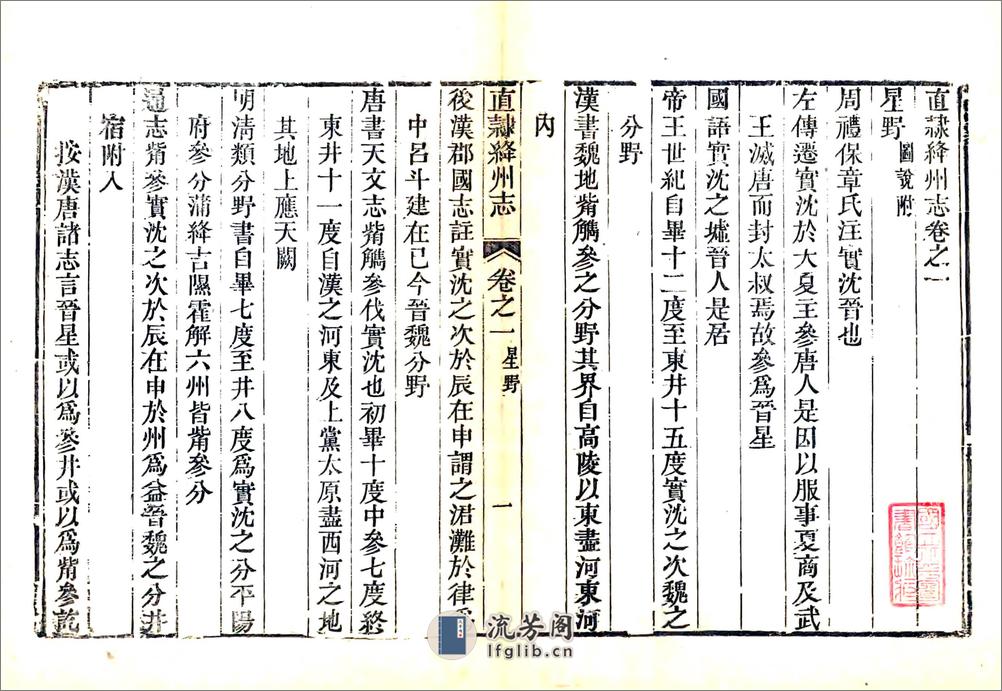 直隷絳州志卷之一
星野 圖說附
周禮保章氏注實沈晉也
左傳遷實沈於大夏主參唐人是因以服事夏商及武
王滅唐而封太叔焉故參爲晉星
國語實沈之墟晉人是居
帝王世紀自畢十二度至東井十五度實沈之次魏之
分野
漢書魏地觜觿參之分野其界自高陵以東盡河東河
內
直隷絳州志 卷之一 星野 一
後漢郡國志註實沈之次於辰在申謂之涒灘於律爲
中呂斗建在巳今晉魏分野
唐書天文志觜觿參伐實沈也初畢十度中參七度終
東井十一度自漢之河東及上黨太原盡西河之地
其地上應天闕
明清類分野書自畢七度至井八度爲實沈之分平陽
府參分蒲絳吉隰霍解六州皆觜參分
通志觜參實沈之次於辰在申於州爲益晉魏之分井
宿附入
按漢唐諸志言晉星或以爲參井或以爲觜參乾
流芳阁
lfglib.cn